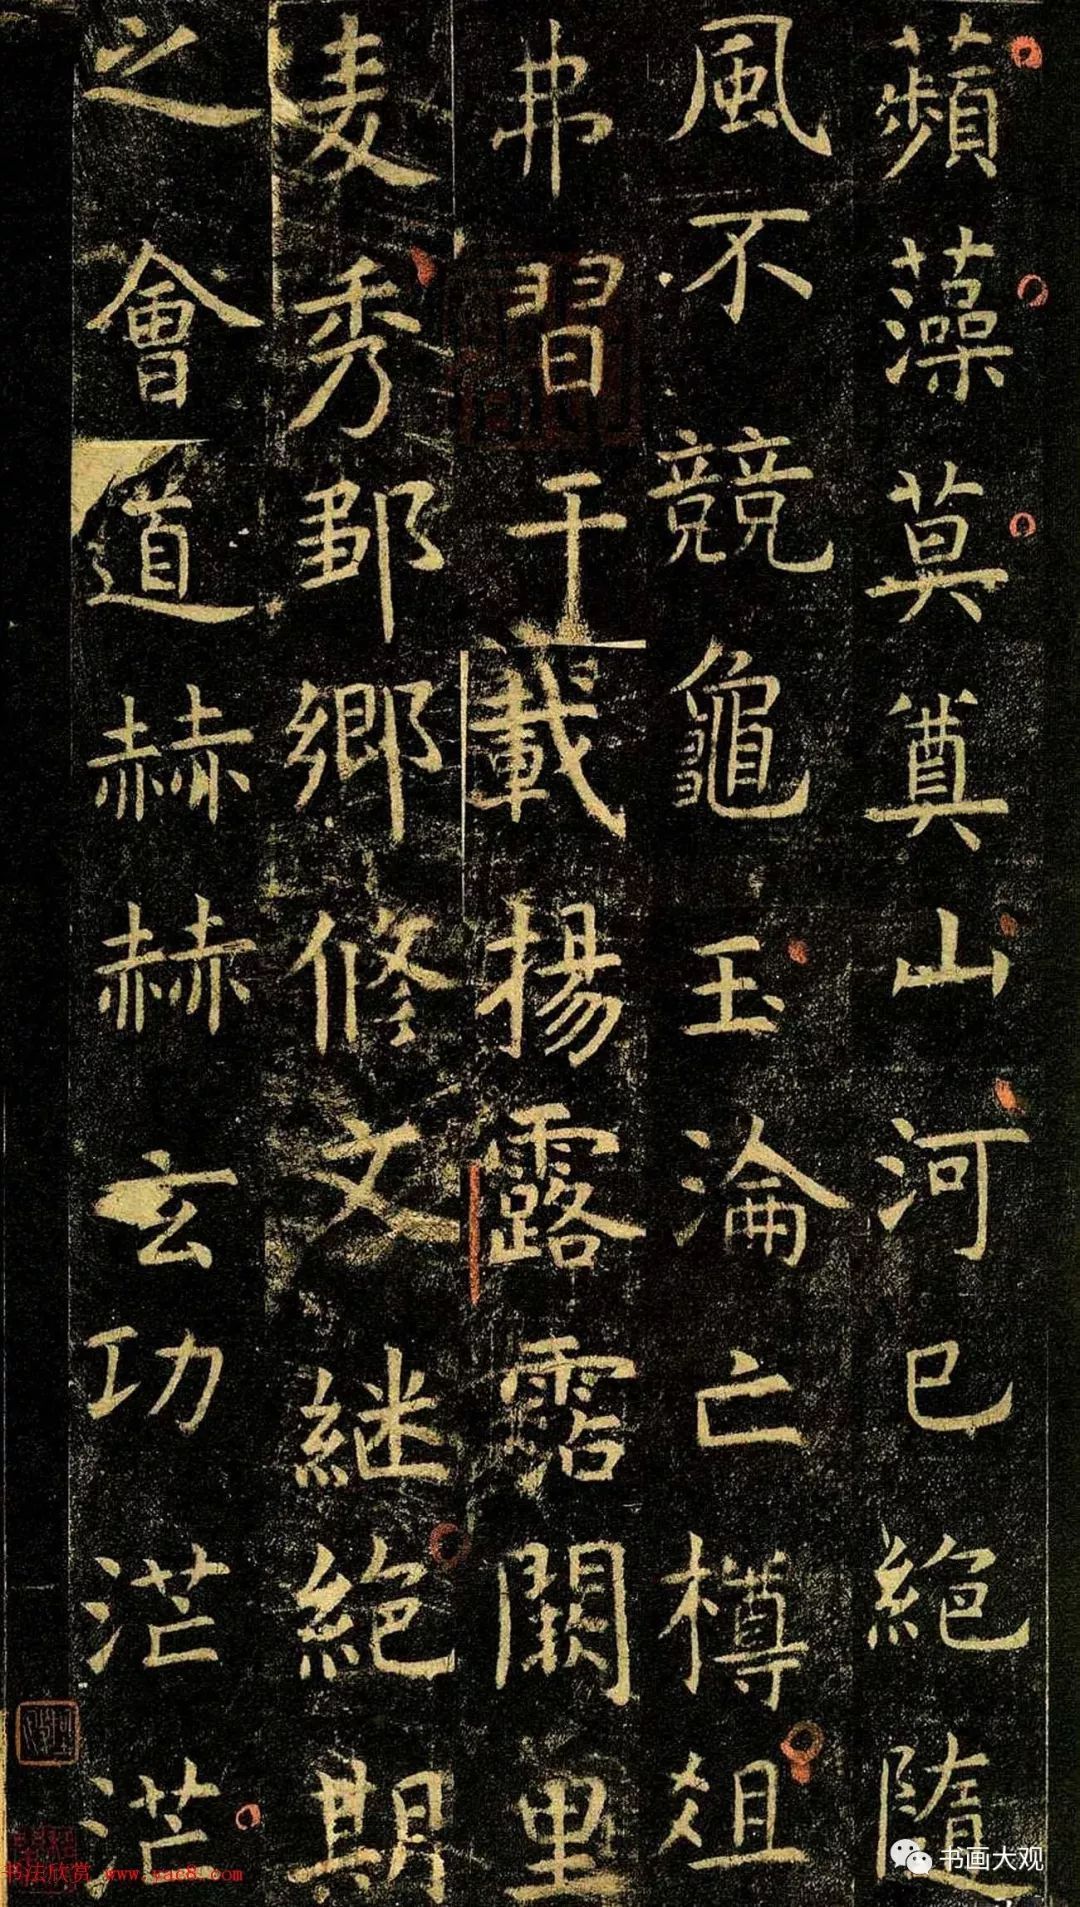 蘋藻莫奠山河已絕隨
風不競龜玉淪亡樽俎
弗習干戢揚露霑闕里
麦秀鄒鄉修文継絕期
之會道赫赫玄功茫茫
书画大观
书法欣赏 www.yac8.com